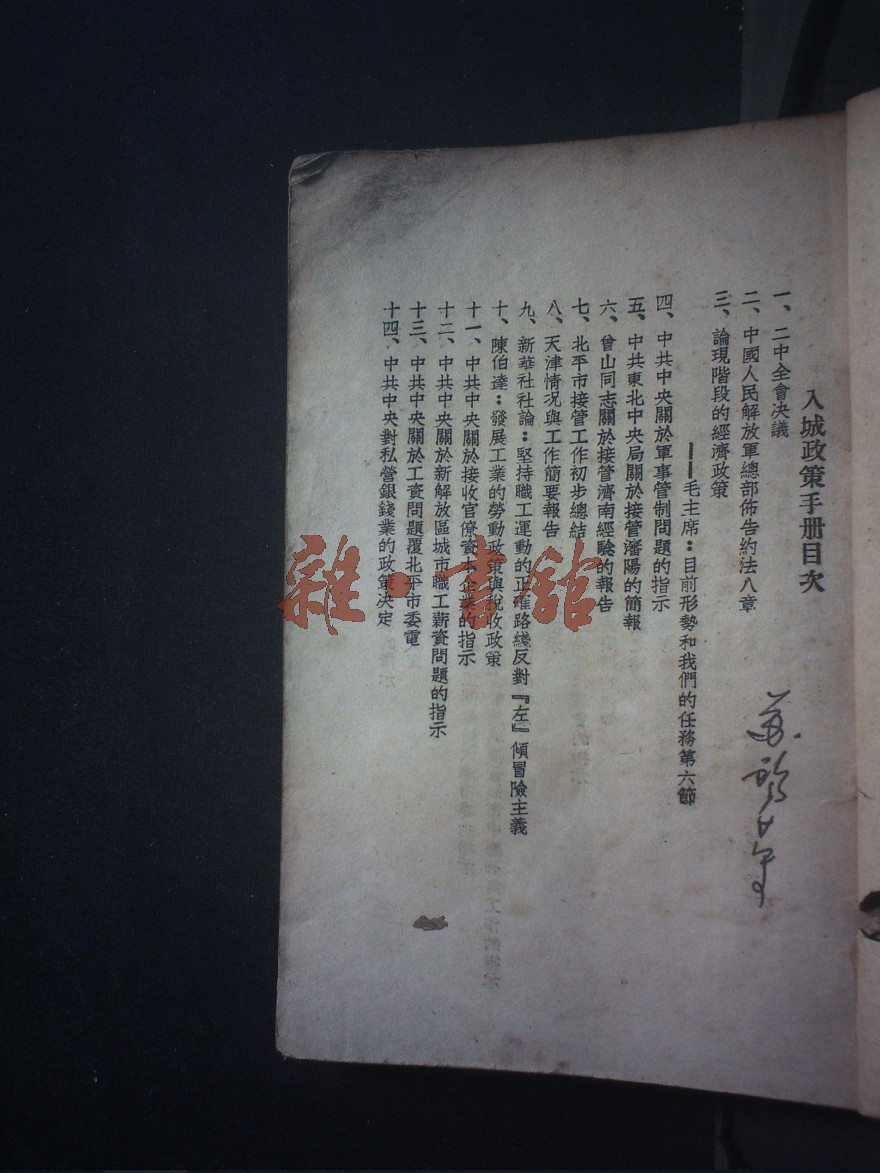 入城政策手册目次
一、二中全會决議
二、中國人民解放軍總部佈告約法八章
三、論現階段的經濟政策
——毛主席：目前形勢和我們的任務第六節
四、中共中央關於軍事管制問題的指示
五、中共東北中央局關於接管瀋陽的簡報
六、曾山同志關於接管濟南經驗的報告
七、北平市接管工作初步總結
八、天津情况與工作簡要報告
九、新華社社論：堅持職工運動的正確路綫反對『左』傾冒險主義
十、陳伯達：發展工業的勞動政策與稅收政策
十一、中共中央關於接收官僚資本企業的指示
十二、中共中央關於新解放區城市職工薪資問題的指示
十三、中共中央關於工資問題覆北平市委電
十四、中共中央對私營銀錢業的政策决定
雜·書館